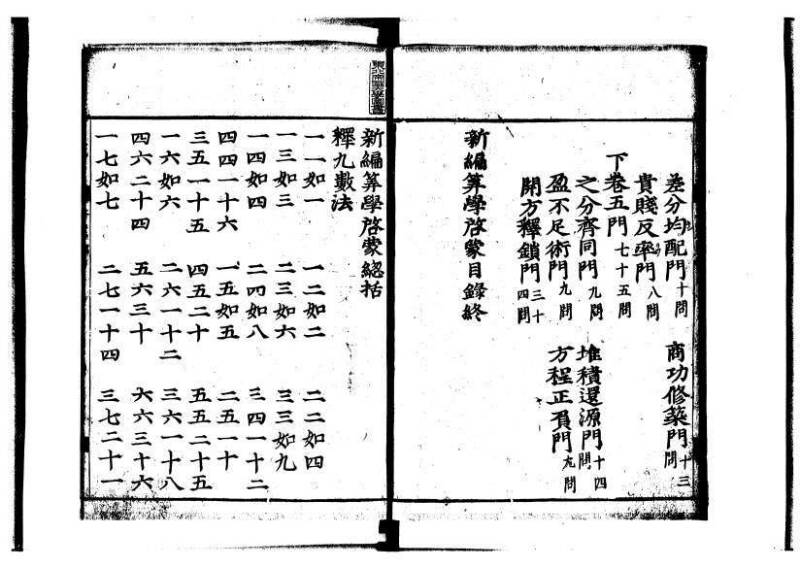 差分均配門十問 商功修築門十三問
貴賤反率門八問
下卷五門七十五問
之分齊同門九問 堆積還源門十四問
盈不足術門九問 方程正負門九問
開方釋鎖門三十四問
新編算學啓蒙目錄終
新編算學啓蒙總括
釋九數法
一一如一 一二如二 二二如四
一三如三 二三如六 三三如九
一四如四 二四如八 三四一十二
四四一十六 一五如五 二五一十
三五一十五 四五二十 五五二十五
一六如六 二六一十二 三六一十八
四六二十四 五六三十 六六三十六
一七如七 二七一十四 三七二十一